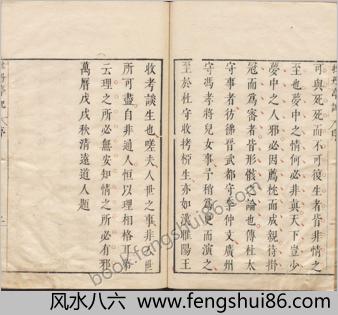 可與死死而不可復生者皆非情之
至也夢中之情何必非真天下豈少
夢中之人邪必因薦枕而成親待掛
冠而為密者皆形骸之論也傳杜太
守事者彷彿晉武都守李仲文廣州
守馮孝將兒女事予稍為更而演之
至於杜守收拷柳生亦如漢睢陽王
收考談生也嗟夫人世之事非人世
所可盡自非通人恒以理相格耳第
云理之所必無安知情之所必有邪
萬曆戊戌秋清遠道人題
book.fengshui86.com
风水八六 | www.fengshui86.com